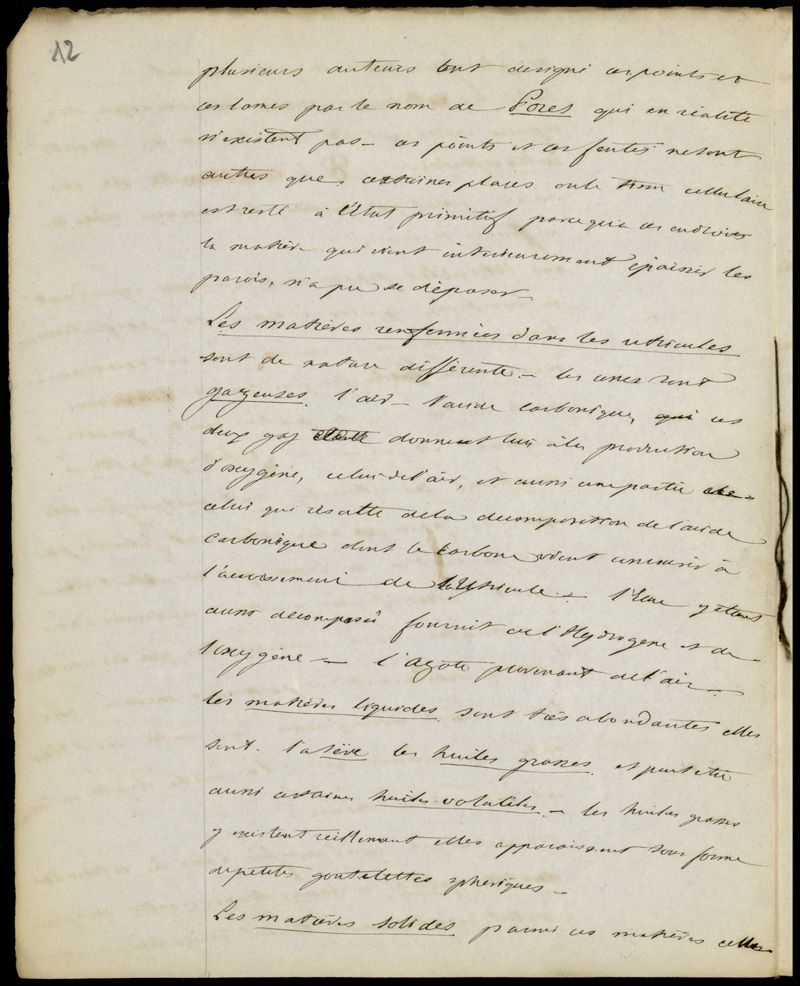 12
plusieurs auteurs ont designé ces points et
ces lames par le nom de Pores qui en réalité
n'existent pas – ces points et ces fentes ne sont
autres que certaines places ou le tissu cellulaire
est resté à l'état primitif parce qu'a ces endroits
la matière qui vient interieurement épaissir les
parois, n'a pu se déposer –
Les matières renfermées dans les utricules
sont de nature différente – les unes sont
gazeuses. l'air – l'acide carbonique, ces
deux gaz donnent lieu à la production
d'oxygène, celui de l'air, et aussi une partie de
celui qui résulte de la decomposition de l'acide
carbonique dont le carbone vient concourir à
l'accroissement de l'utricule – l'eau y étant
aussi décomposée fournit de l'Hydrogene et de
l'oxygène – l'azote provenant de l'air –
les matières liquides sont très abondantes elles
sont. la sève les huiles grasses et peut etre
aussi certaines huiles volatiles – les huiles grasses
y existent réellement elles apparaissent sous forme
de petites goutelettes spheriques –
Les matières solides parmi ces matières celles